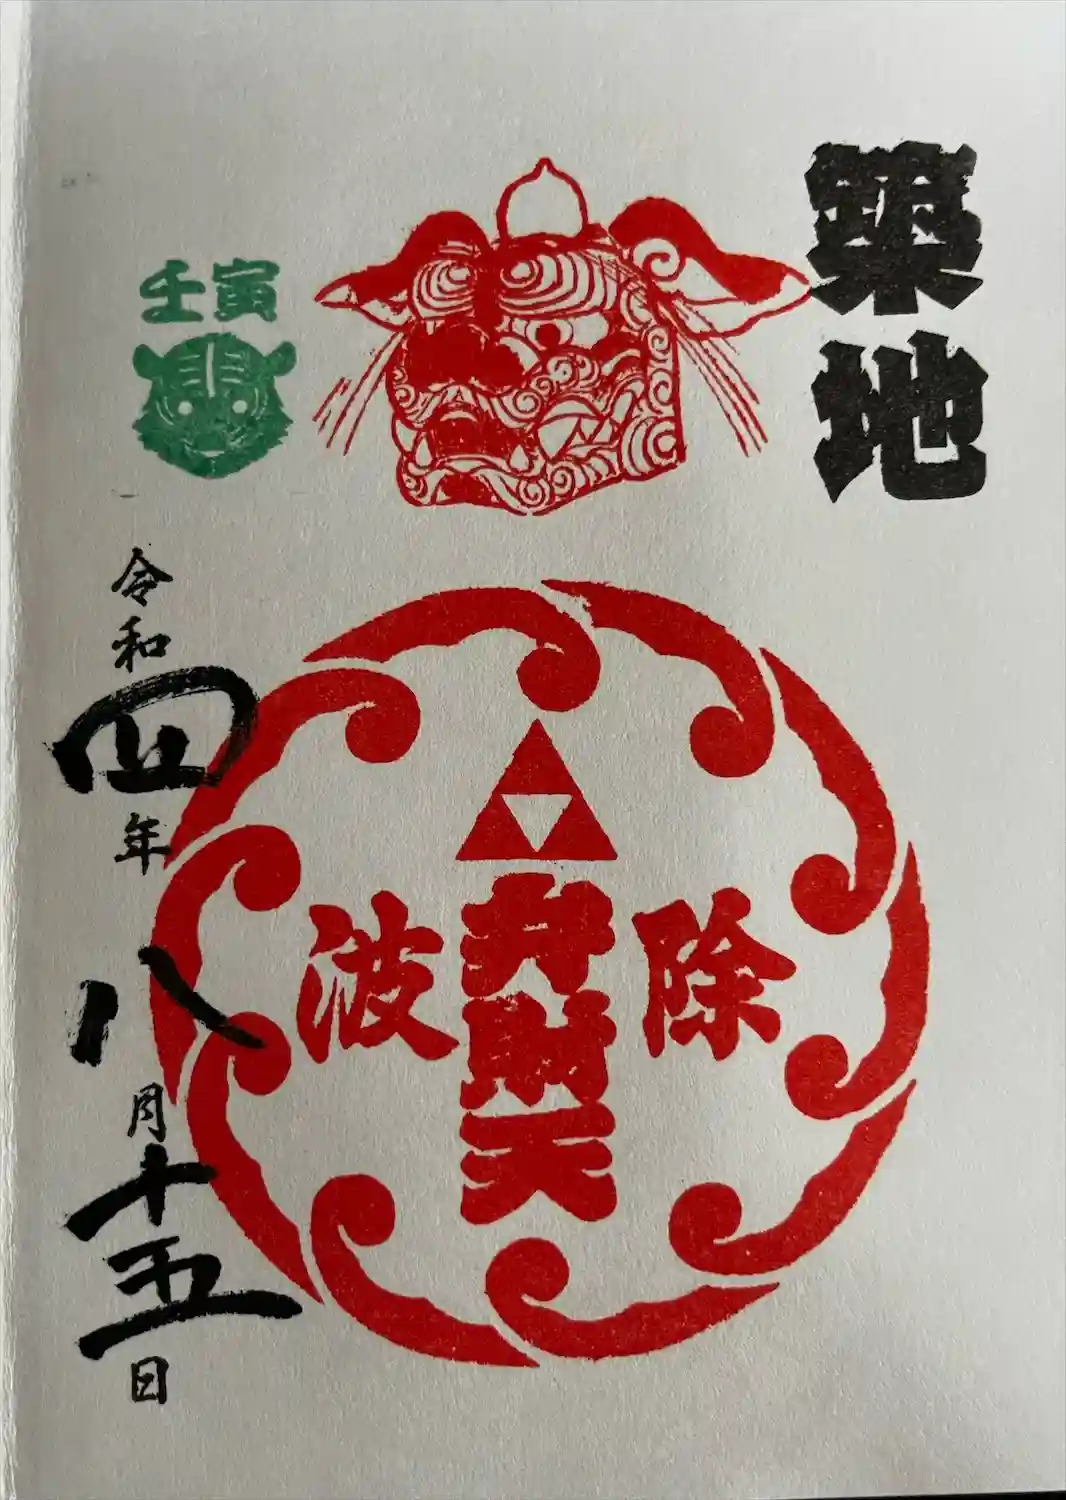 築地
除波
弁財天
壬寅
令和四年八月十五日